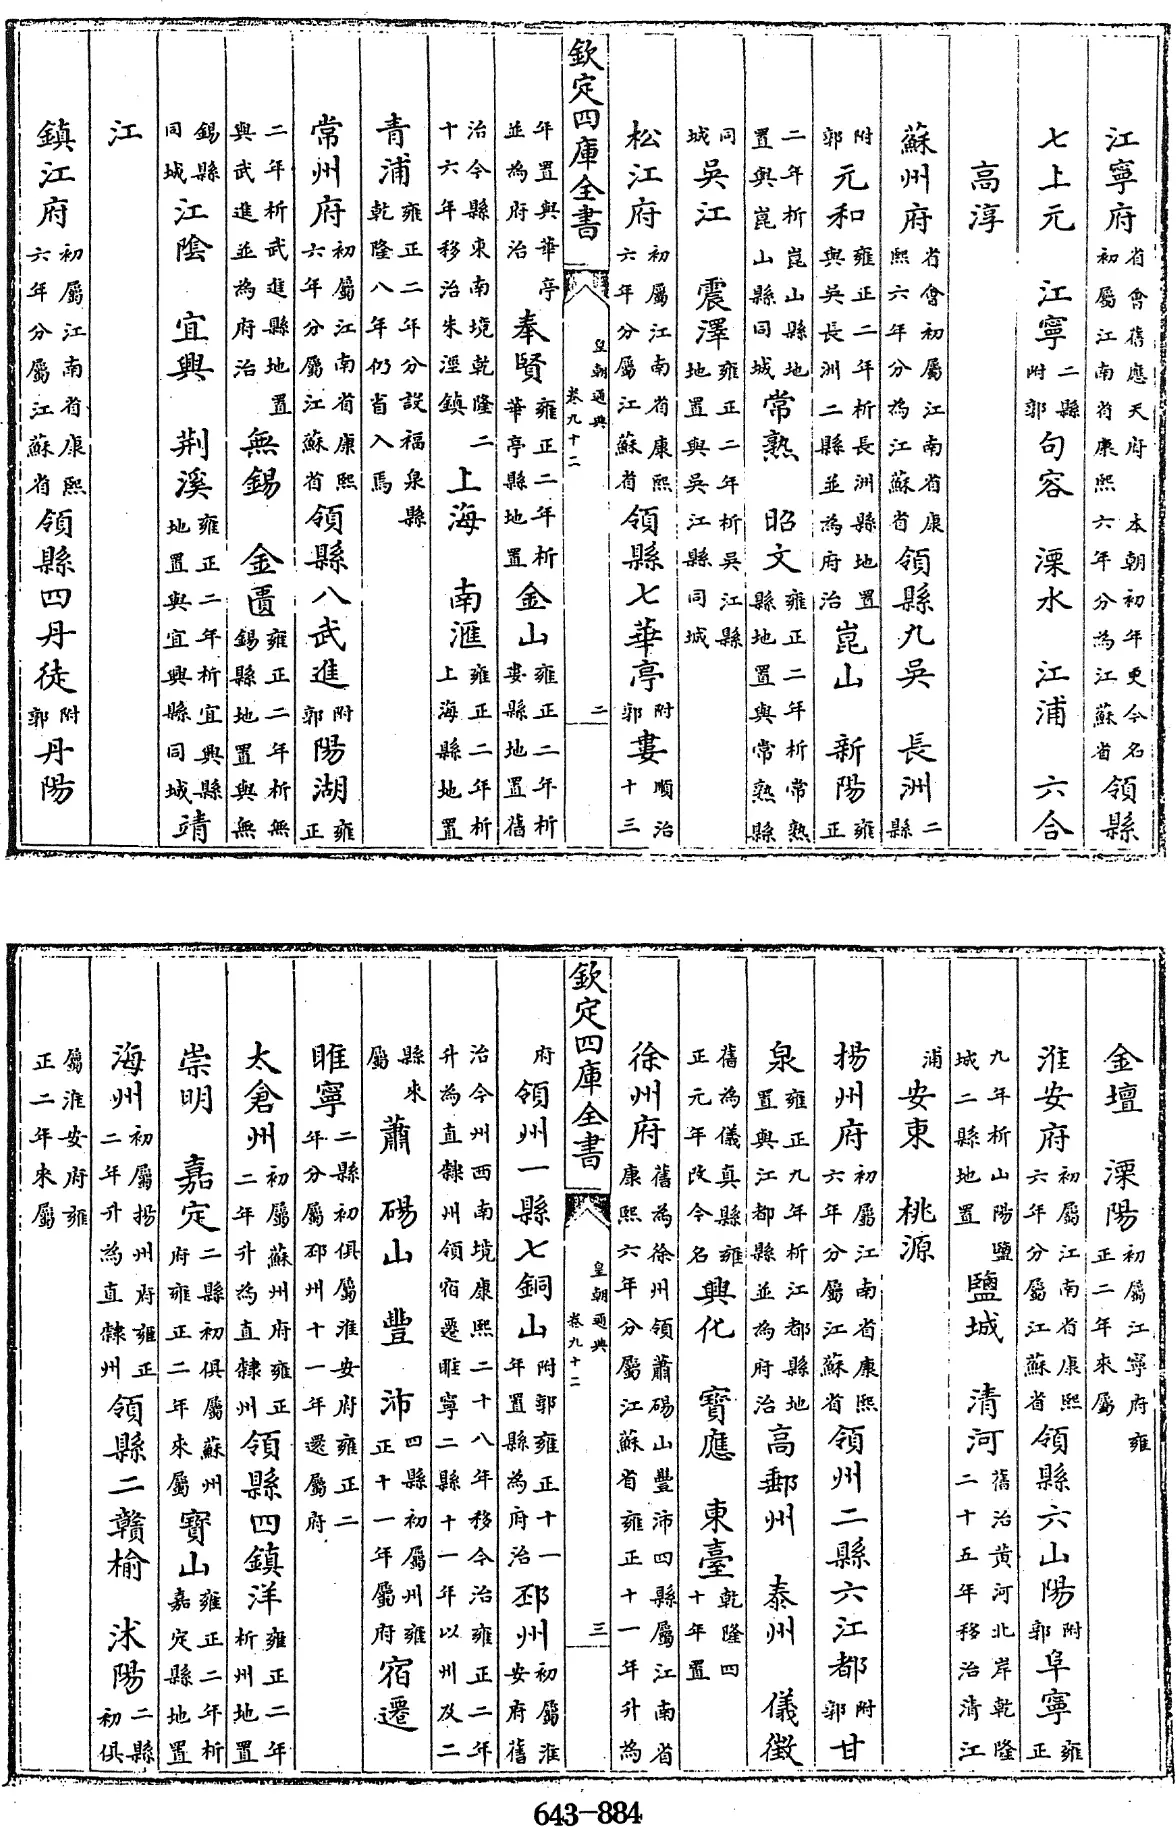 江寧府省會舊應天府 本朝初年更今名初屬江南省康熙六年分為江蘇省領縣
七上元 江寧二縣附郭句容 溧水 江浦 六合
高淳
蘇州府省會初屬江南省康熙六年分為江蘇省領縣九吳 長洲二縣
附郭元和雍正二年析長洲縣地置與吳長洲二縣並為府治崑山 新陽雍正
二年析崑山縣地置與崑山縣同城常熟 昭文雍正二年析常熟縣地置與常熟縣
同城吳江 震澤雍正二年析吳江縣地置與吳江縣同城
松江府初屬江南省康熙六年分屬江蘇省領縣七華亭附郭婁順治十三
欽定四庫全書 皇朝通典 卷九十二 二
年置與華亭並為府治奉賢雍正二年析華亭縣地置金山雍正二年析婁縣地置舊
治今縣東南境乾隆二十六年移治朱涇鎮上海 南滙雍正二年析上海縣地置
青浦雍正二年分設福泉縣乾隆八年仍省入焉
常州府初屬江南省康熙六年分屬江蘇省領縣八武進附郭陽湖雍正
二年析武進縣地置與武進並為府治無錫 金匱雍正二年析無錫縣地置與無
錫縣同城江陰 宜興 荆溪雍正二年析宜興縣地置與宜興縣同城靖
江
鎮江府初屬江南省康熙六年分屬江蘇省領縣四丹徒附郭丹陽
金壇 溧陽初屬江寧府雍正二年來屬
淮安府初屬江南省康熙六年分屬江蘇省領縣六山陽附郭阜寧雍正
九年析山陽鹽城二縣地置鹽城 清河舊治黃河北岸乾隆二十五年移治清江
浦安東 桃源
揚州府初屬江南省康熙六年分屬江蘇省領州二縣六江都附郭甘
泉雍正九年析江都縣地置與江都縣並為府治高郵州 泰州 儀徵
舊為儀真縣雍正元年改今名興化 寶應 東臺乾隆四十年置
徐州府舊為徐州領蕭碭山豐沛四縣屬江南省康熙六年分屬江蘇省雍正十一年升為
欽定四庫全書 皇朝通典 卷九十二 三
府領州一縣七銅山附郭雍正十一年置縣為府治邳州初屬淮安府舊
治今州西南境康熙二十八年移今治雍正二年升為直隸州領宿遷睢寧二縣十一年以州及二
縣來屬蕭 碭山 豐 沛四縣初屬州雍正十一年屬府宿遷
睢寧二縣初俱屬淮安府雍正二年分屬邳州十一年還屬府
太倉州初屬蘇州府雍正二年升為直隸州領縣四鎮洋雍正二年析州地置
崇明 嘉定二縣初俱屬蘇州府雍正二年來屬寶山雍正二年析嘉定縣地置
海州初屬揚州府雍正二年升為直隸州領縣二贛榆 沭陽二縣初俱
屬淮安府雍正二年來屬
643-884